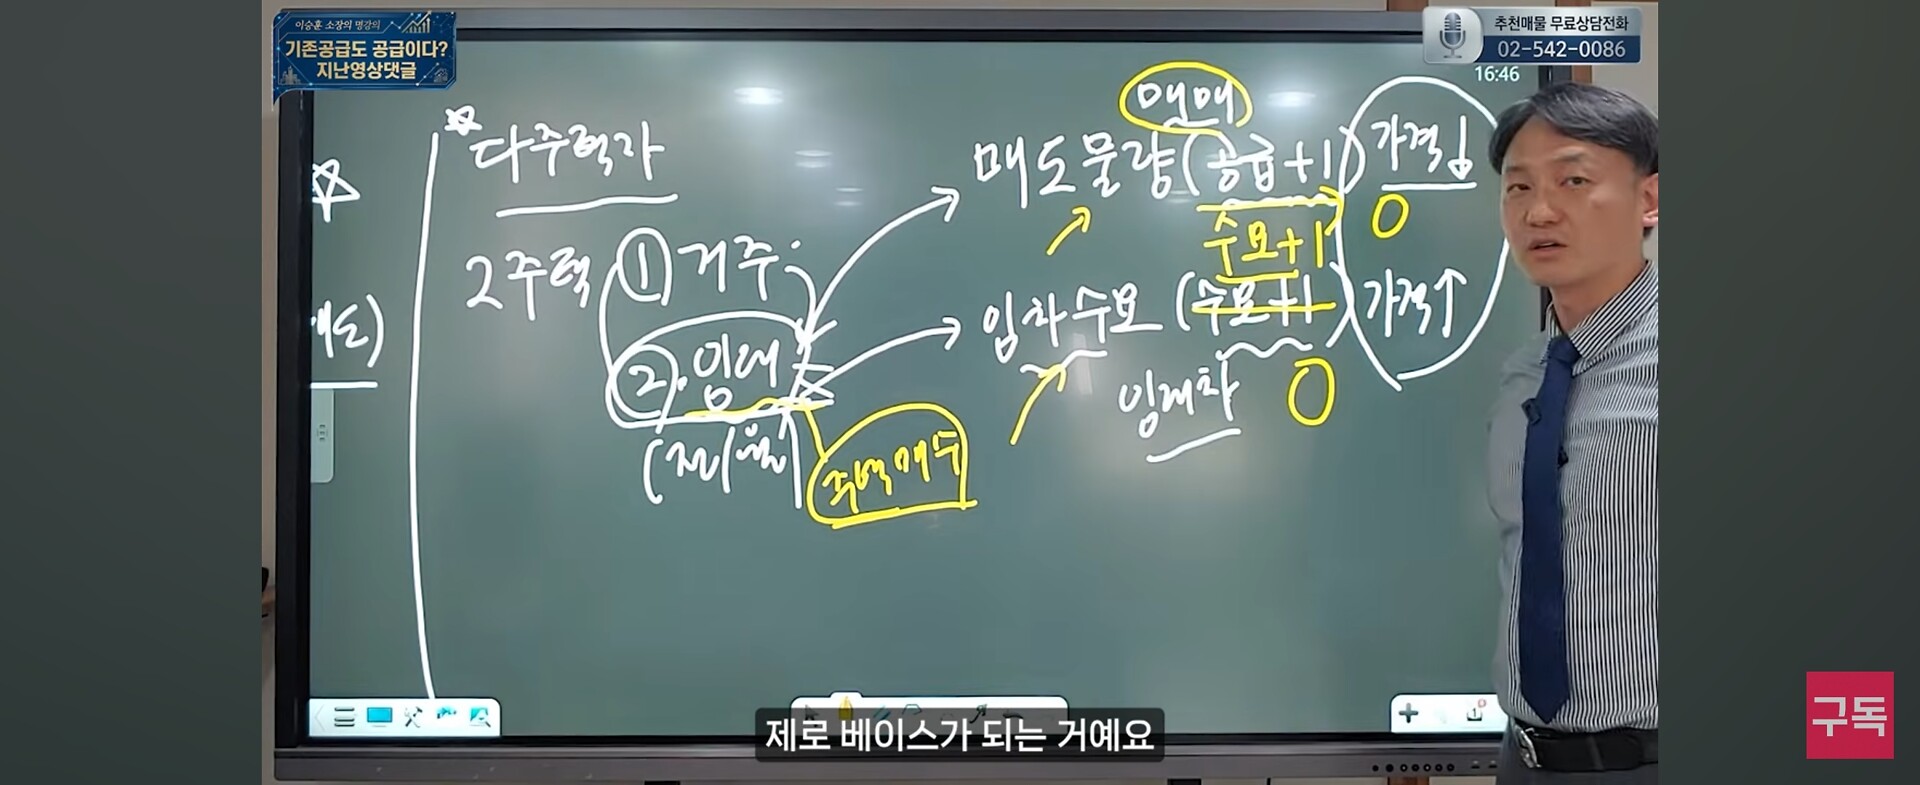 이승훈 소장의 명강의
기존공급도 공급이다?
지난영상댓글
추천매물 무료상담전화
02-542-0086
16:46
다주택자
2주택 ① 거주
② 임대
(전/월)
주택매수
매매
매도물량 (공급+1) 가격↓
수요+1 0
임차수요 (수요+1) 가격↑
임대차 0
제로 베이스가 되는 거예요
구독